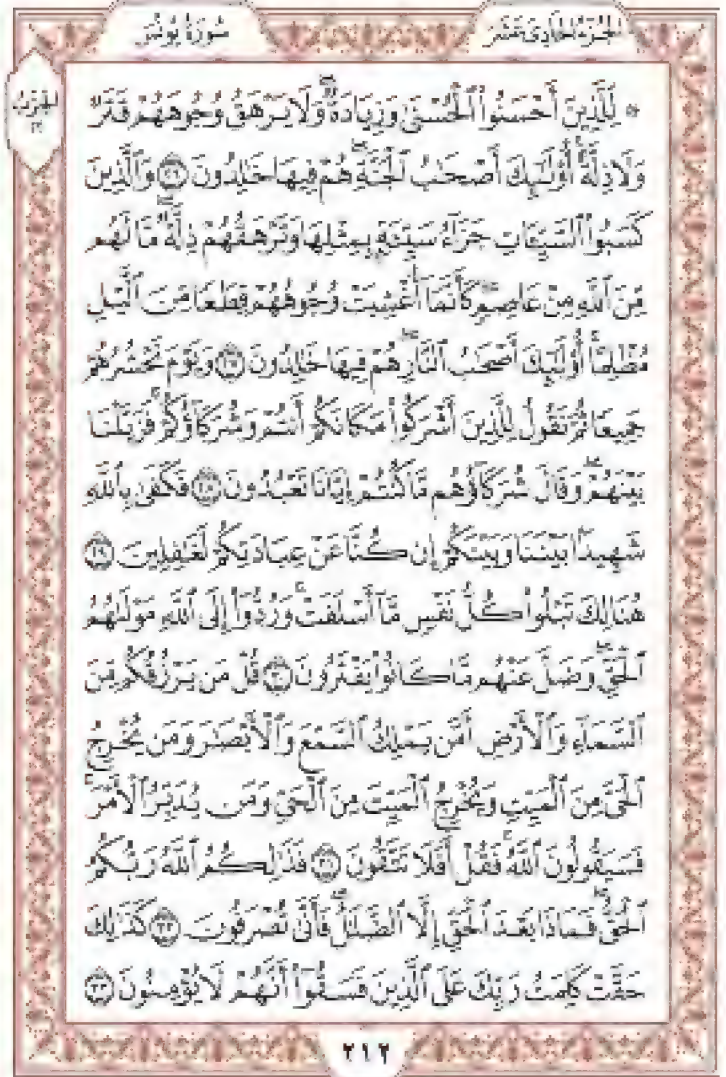 سُورَةُ يُونُسَ
الجُزْءُ الحَادِي عَشَرَ
الحِزْبُ
۞ لِّلَّذِينَ أَحْسَنُوا۟ ٱلْحُسْنَىٰ وَزِيَادَةٌ ۖ وَلَا يَرْهَقُ وُجُوهَهُمْ قَتَرٌ
وَلَا ذِلَّةٌ ۚ أُو۟لَٰٓئِكَ أَصْحَٰبُ ٱلْجَنَّةِ ۖ هُمْ فِيهَا خَٰلِدُونَ ٢٦ وَٱلَّذِينَ
كَسَبُوا۟ ٱلسَّيِّـَٔاتِ جَزَآءُ سَيِّئَةٍۭ بِمِثْلِهَا وَتَرْهَقُهُمْ ذِلَّةٌ ۖ مَّا لَهُم
مِّنَ ٱللَّهِ مِنْ عَاصِمٍ ۖ كَأَنَّمَآ أُغْشِيَتْ وُجُوهُهُمْ قِطَعًا مِّنَ ٱلَّيْلِ
مُظْلِمًا ۚ أُو۟لَٰٓئِكَ أَصْحَٰبُ ٱلنَّارِ ۖ هُمْ فِيهَا خَٰلِدُونَ ٢٧ وَيَوْمَ نَحْشُرُهُمْ
جَمِيعًا ثُمَّ نَقُولُ لِلَّذِينَ أَشْرَكُوا۟ مَكَانَكُمْ أَنتُمْ وَشُرَكَآؤُكُمْ ۚ فَزَيَّلْنَا
بَيْنَهُمْ ۖ وَقَالَ شُرَكَآؤُهُم مَّا كُنتُمْ إِيَّانَا تَعْبُدُونَ ٢٨ فَكَفَىٰ بِٱللَّهِ
شَهِيدًۢا بَيْنَنَا وَبَيْنَكُمْ إِن كُنَّا عَنْ عِبَادَتِكُمْ لَغَٰفِلِينَ ٢٩
هُنَالِكَ تَبْلُوا۟ كُلُّ نَفْسٍ مَّآ أَسْلَفَتْ ۚ وَرُدُّوٓا۟ إِلَى ٱللَّهِ مَوْلَىٰهُمُ
ٱلْحَقِّ ۖ وَضَلَّ عَنْهُم مَّا كَانُوا۟ يَفْتَرُونَ ٣٠ قُلْ مَن يَرْزُقُكُم مِّنَ
ٱلسَّمَآءِ وَٱلْأَرْضِ أَمَّن يَمْلِكُ ٱلسَّمْعَ وَٱلْأَبْصَٰرَ وَمَن يُخْرِجُ
ٱلْحَىَّ مِنَ ٱلْمَيِّتِ وَيُخْرِجُ ٱلْمَيِّتَ مِنَ ٱلْحَىِّ وَمَن يُدَبِّرُ ٱلْأَمْرَ ۚ
فَسَيَقُولُونَ ٱللَّهُ ۚ فَقُلْ أَفَلَا تَتَّقُونَ ٣١ فَذَٰلِكُمُ ٱللَّهُ رَبُّكُمُ
ٱلْحَقُّ ۖ فَمَاذَا بَعْدَ ٱلْحَقِّ إِلَّا ٱلضَّلَٰلُ ۖ فَأَنَّىٰ تُصْرَفُونَ ٣٢ كَذَٰلِكَ
حَقَّتْ كَلِمَتُ رَبِّكَ عَلَى ٱلَّذِينَ فَسَقُوٓا۟ أَنَّهُمْ لَا يُؤْمِنُونَ ٣٣
٢١٢